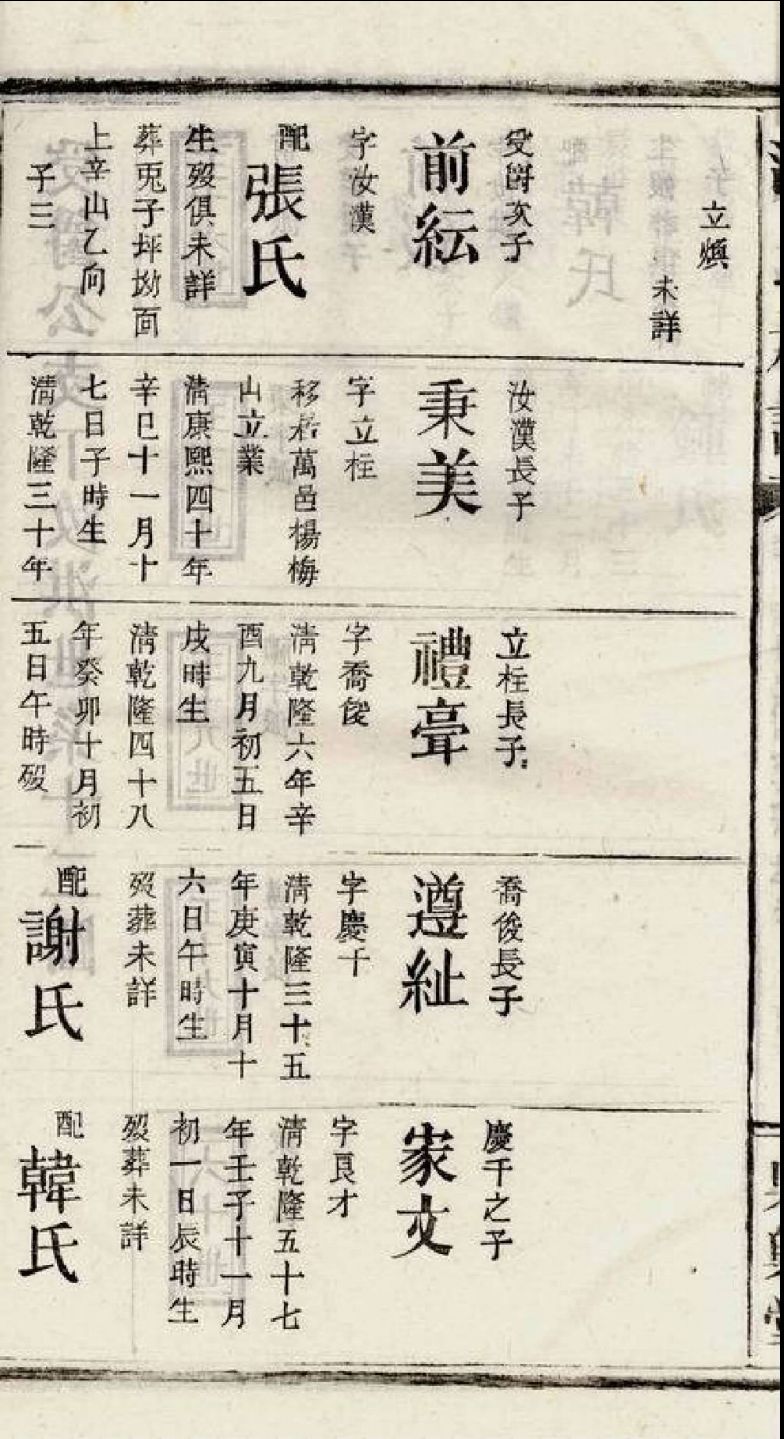 立煥
未詳
受爵次子
前紜
字汝漢
配
張氏
生歿俱未詳
葬兎子坪坳面
上辛山乙向
子三
汝漢長子
秉美
字立柱
移居萬邑楊梅
山立業
清康熙四十年
辛巳十一月十
七日子時生
清乾隆三十年
立柱長子
禮亭
字喬俊
清乾隆六年辛
酉九月初五日
戌時生
清乾隆四十八
年癸卯十月初
五日午時歿
喬俊長子
遵紪
字慶千
清乾隆三十五
年庚寅十月十
六日午時生
歿葬未詳
配
謝氏
慶千之子
家文
字良才
清乾隆五十七
年壬子十一月
初一日辰時生
歿葬未詳
配
韓氏